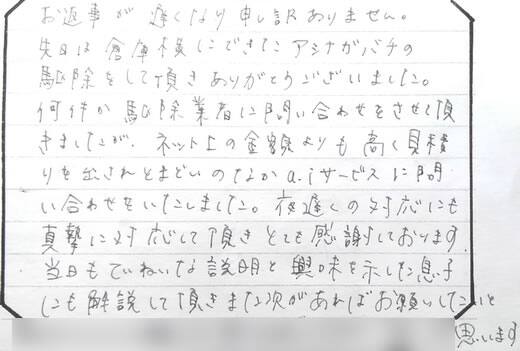 お返事が遅くなり申し訳ありません。
先日は倉庫横にできたアシナガバチの
駆除をして頂きありがとうございました。
何件か駆除業者に問い合わせをさせて頂
きましたが、ネット上の金額よりも高く見積
りを出されとまどいのなかa.iサービスに問
い合わせをいたしました。夜遅くの対応にも
真摯に対応して頂きとても感謝しております
当日もていねいな説明と興味を示した息子
にも解説して頂きまた次があればお願いしたいと
思います